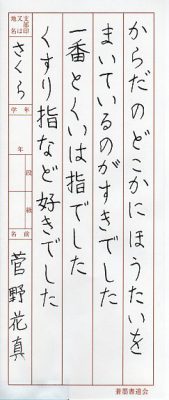 からだのどこかにほうたいを
まいているのがすきでした
一番とくいは指でした
くすり指など好きでした
支部印又は地名
さくら
学年
年
段
級
名前
菅野花真
蒼墨書道会